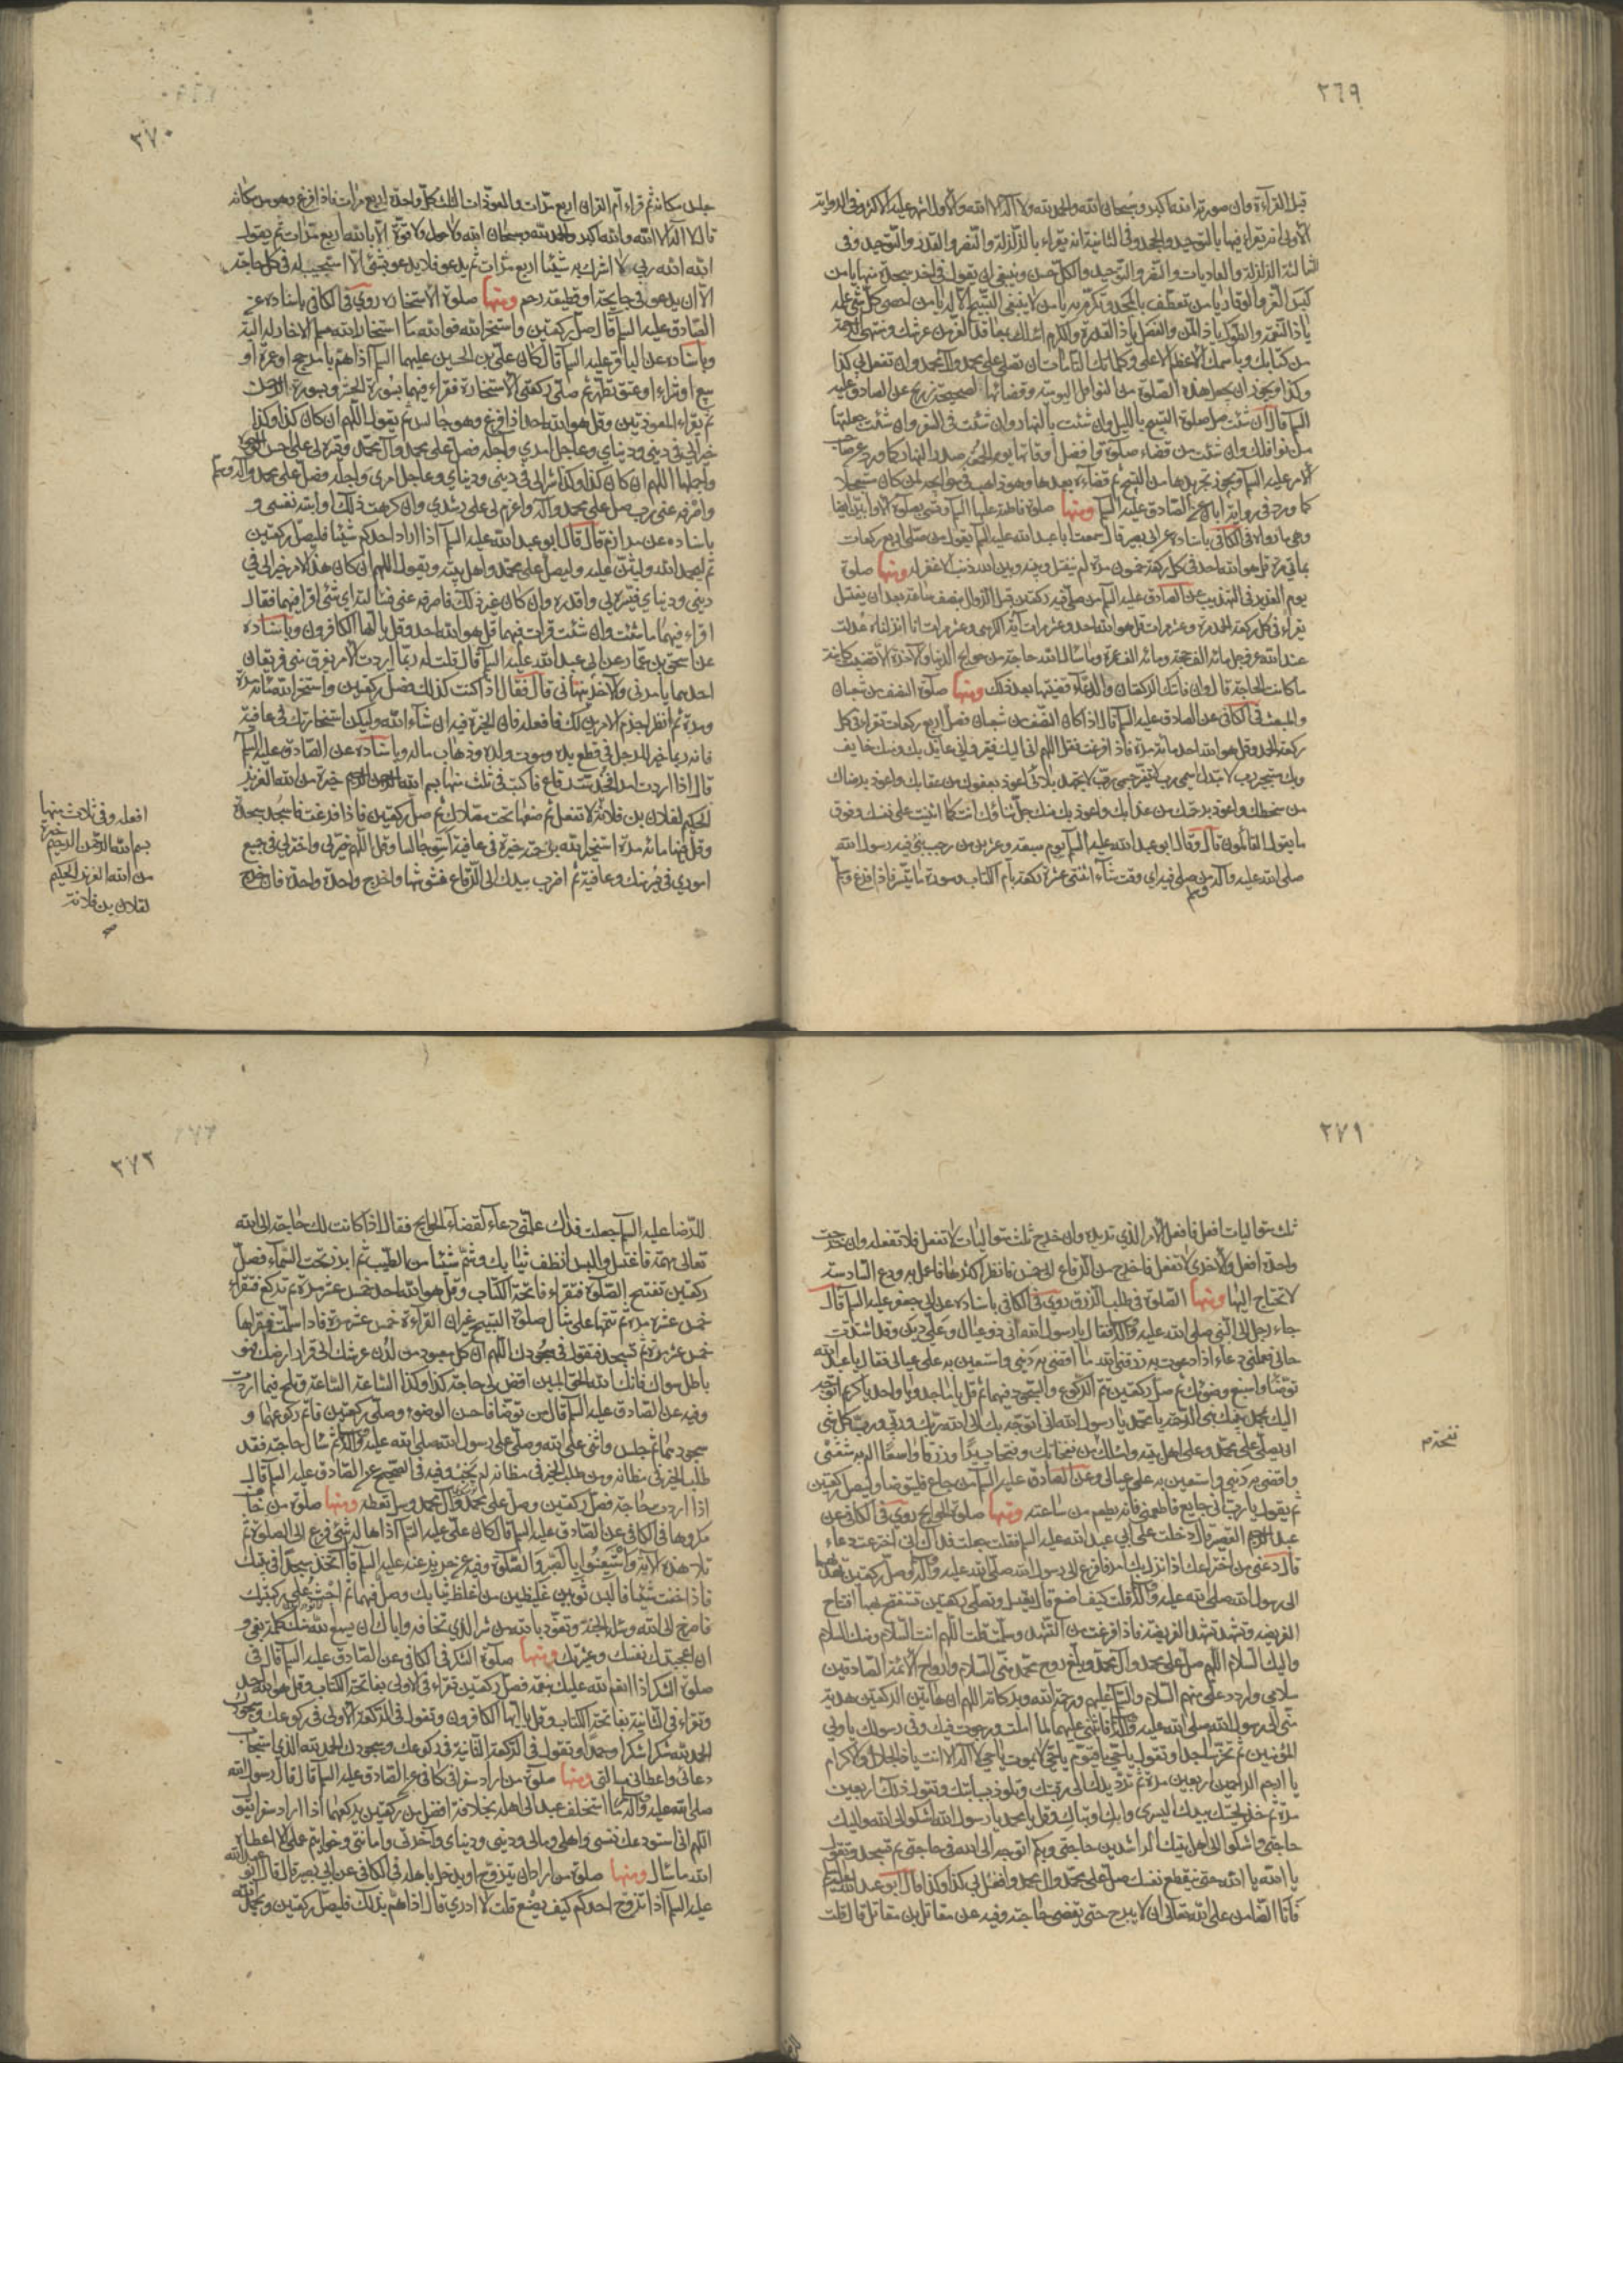 ٢٦٩
قبل القراءة وان صورته الله اكبر وسبحان الله والحمد لله ولا اله الا الله والاول اشهر وعليه الاكثر وفي الرواية
الاولى انه يقراء فيها بالتوحيد والجحد وفي الثانية انه يقراء بالزلزلة والنصر والقدر والتوحيد وفي
الثالثة الزلزلة والعاديات والنصر والتوحيد والكل حسن وينبغي ان يقول في اخر سجدة منها يا من
لبس العز والوقار يا من تعطف بالمجد وتكرم به يا من لا ينبغي التسبيح الا له يا من احصى كل شئ علمه
يا ذا النعمة والطول يا ذا المن والفضل يا ذا القدرة والكرم اسئلك بمعاقد العز من عرشك ومنتهى الرحمة
من كتابك وباسمك الاعظم الاعلى وكلماتك التامات ان تصلي على محمد وال محمد وان تفعل بي كذا
وكذا ويجوز ان يجعل هذه الصلوة من النوافل اليومية وقضائها لصحيحة ذريح عن الصادق عليه
السلام قال ان شئت صل صلوة التسبيح بالليل وان شئت بالنهار وان شئت في السفر وان شئت جعلتها
من نوافلك وان شئت من قضاء صلوة وافضل اوقاتها يوم الجمعة صدر النهار كما ورد عن صاحب
الامر عليه السلام ويجوز تجريدها من التسبيح ثم قضاءه بعدها وهو ذاهب في حوائجه لمن كان مستعجلا
كما ورد في رواية ابان عن الصادق عليه السلام ومنها صلوة فاطمة عليها السلام وتسمى بصلوة الاوابين ايضا
وهي ما رواه في الكافي باسناده عن ابي بصير قال سمعت ابا عبد الله عليه السلام يقول من صلى اربع ركعات
بمائتي مرة قل هو الله احد في كل ركعة خمسون مرة لم ينفتل وبينه وبين الله ذنب الا غفر له ومنها صلوة
يوم الغدير في التهذيب عن الصادق عليه السلام من صلى فيه ركعتين قبل الزوال بنصف ساعة بعد ان يغتسل
يقراء في كل ركعة الحمد مرة وعشر مرات قل هو الله احد وعشر مرات آية الكرسي وعشر مرات انا انزلناه عدلت
عند الله عز وجل مائة الف حجة ومائة الف عمرة وما سأل الله حاجة من حوائج الدنيا والاخرة الا قضيت كائنة
ما كانت الحاجة قال وان فاتتك الركعتان والدعاء قضيتها بعد ذلك ومنها صلوة النصف من شعبان
والمبعث في الكافي عن الصادق عليه السلام قال اذا كان النصف من شعبان فصل اربع ركعات تقراء في كل
ركعة الحمد وقل هو الله احد مائة مرة فاذا فرغت فقل اللهم اني اليك فقير واني عائذ بك ومنك خايف
وبك مستجير رب لا تبدل اسمي رب لا تغير جسمي رب لا تجهد بلائي اعوذ بعفوك من عقابك واعوذ برضاك
من سخطك واعوذ برحمتك من عذابك واعوذ بك منك جل ثناؤك انت كما اثنيت على نفسك وفوق
ما يقول القائلون قال وقال ابو عبد الله عليه السلام يوم سبعة وعشرين من رجب نبئ فيه رسول الله
صلى الله عليه وآله من صلى فيه اي وقت شاء اثنتي عشرة ركعة بام الكتاب وسورة ما تيسر فاذا فرغ وسلم
٢٧٠
جلس مكانه ثم قراء ام القران اربع مرات والمعوذات الثلث كل واحدة اربع مرات فاذا فرغ وهو من مكانه
قال لا اله الا الله والله اكبر والحمد لله وسبحان الله ولا حول ولا قوة الا بالله اربع مرات ثم يقول
الله الله ربي لا اشرك به شيئا اربع مرات ثم يدعو فلا يدعو بشئ الا استجيب له في كل حاجة
الا ان يدعو في جايحة او قطيعة رحم ومنها صلوة الاستخارة روي في الكافي باسناده عن
الصادق عليه السلام قال صل ركعتين واستخر الله فوالله ما استخار الله مسلم الا خار له البتة
وباسناده عن الباقر عليه السلام قال كان علي بن الحسين عليهما السلام اذا هم بامر حج او عمرة او
بيع او شراء او عتق تطهر ثم صلى ركعتي الاستخارة فقراء فيهما بسورة الحشر وبسورة الرحمن
ثم يقراء المعوذتين وقل هو الله احد اذا فرغ وهو جالس ثم يقول اللهم ان كان كذا وكذا
خيرا لي في ديني ودنياي وعاجل امري واجله فصل على محمد وآل محمد ويسره لي على احسن الوجوه
واجملها اللهم ان كان كذا وكذا شرا لي في ديني ودنياي وعاجل امري واجله فصل على محمد وآله
واصرفه عني رب صل على محمد وآله واعزم لي على رشدي وان كرهت ذلك او ابته نفسي و
باسناده عن مرازم قال قال ابو عبد الله عليه السلام اذا اراد احدكم شيئا فليصل ركعتين
ثم ليحمد الله وليثن عليه وليصل على محمد واهل بيته ويقول اللهم ان كان هذا الامر خيرا لي في
ديني ودنياي فيسره لي واقدره وان كان غير ذلك فاصرفه عني فسالته اي شئ اقرا فيهما فقال
اقراء فيهما ما شئت وان شئت قرات فيهما قل هو الله احد وقل يا ايها الكافرون وباسناده
عن اسحق بن عمار عن ابي عبد الله عليه السلام قال قلت له ربما اردت الامر يفرق مني فريقان
احدهما يامرني والاخر ينهاني قال فقال اذا كنت كذلك فصل ركعتين واستخر الله مائة مرة
ومرة ثم انظر احزم الامرين لك فافعله فان الخيرة فيه ان شاء الله وليكن استخارتك في عافية
فانه ربما خير للرجل في قطع يده وموت ولده وذهاب ماله وباسناده عن الصادق عليه السلام
قال اذا اردت امرا فخذ ست رقاع فاكتب في ثلث منها بسم الله الرحمن الرحيم خيرة من الله العزيز
الحكيم لفلان بن فلانة لا تفعل ثم ضعها تحت مصلاك ثم صل ركعتين فاذا فرغت فاسجد سجدة
وقل فيها مائة مرة استخير الله برحمته خيرة في عافية ثم استو جالسا وقل اللهم خر لي واختر لي في جميع
اموري في يسر منك وعافية ثم اضرب بيدك الى الرقاع فشوشها واخرج واحدة واحدة فان خرج
افعله وفي ثلاث منها
بسم الله الرحمن الرحيم خيرة
من الله العزيز الحكيم
لفلان بن فلانة
صح
٢٧١
ثلث متواليات افعل فافعل الامر الذي تريده وان خرج ثلث متواليات لا تفعل فلا تفعله وان خرجت
واحدة افعل والاخرى لا تفعل فاخرج من الرقاع الى خمس فانظر اكثرها فاعمل به ودع السادسة
لا تحتاج اليها ومنها الصلوة في طلب الرزق روي في الكافي باسناده عن ابي جعفر عليه السلام قال
جاء رجل الى النبي صلى الله عليه وآله فقال يا رسول الله اني ذو عيال وعلي دين وقد اشتدت
حالي فعلمني دعاء اذا دعوت به رزقني الله ما اقضي به ديني واستعين به على عيالي فقال يا عبد الله
توضا واسبغ وضوئك ثم صل ركعتين تتم الركوع والسجود فيهما ثم قل يا ماجد يا واحد يا كريم اتوجه
اليك بمحمد نبيك نبي الرحمة يا محمد يا رسول الله اني اتوجه بك الى الله ربك وربي ورب كل شئ
ان يصلي على محمد وعلى اهل بيته واسئلك من نفحاتك وفتحا يسيرا ورزقا واسعا الم به شعثي
واقضي به ديني واستعين به على عيالي وعن الصادق عليه السلام من جاع فليتوضا وليصل ركعتين
ثم يقول يا رب اني جايع فاطعمني فانه يطعم من ساعته ومنها صلوة الحوايج روي في الكافي عن
عبد الرحيم القصير قال دخلت على ابي عبد الله عليه السلام فقلت جعلت فداك اني اخترعت دعاء
قال دعني من اختراعك اذا نزل بك امر فافزع الى رسول الله صلى الله عليه وآله وصل ركعتين تهديهما
الى رسول الله صلى الله عليه وآله قلت كيف اصنع قال تغتسل وتصلي ركعتين تستفتح بهما افتتاح
الفريضة وتشهد تشهد الفريضة فاذا فرغت من التشهد وسلمت قلت اللهم انت السلام ومنك السلام
واليك السلام اللهم صل على محمد وآل محمد وبلغ روح محمد مني السلام وارواح الائمة الصادقين
سلامي واردد علي منهم السلام والسلام عليهم ورحمة الله وبركاته اللهم ان هاتين الركعتين هدية
مني الى رسول الله صلى الله عليه وآله فاثبني عليهما ما املت ورجوت فيك وفي رسولك يا ولي
المؤمنين ثم تخر ساجدا وتقول يا حي يا قيوم يا حي لا يموت يا حي لا اله الا انت يا ذا الجلال والاكرام
يا ارحم الراحمين اربعين مرة ثم ترد يدك الى رقبتك وتلوذ بسبابتك وتقول ذلك اربعين
مرة ثم خذ لحيتك بيدك اليسرى وابك او تباك وقل يا محمد يا رسول الله اشكو الى الله واليك
حاجتي واشكو الى اهل بيتك الراشدين حاجتي وبكم اتوجه الى الله في حاجتي ثم تسجد وتقول
يا الله يا الله حتى ينقطع نفسك صل على محمد وال محمد وافعل بي كذا وكذا قال ابو عبد الله عليه السلام
فانا الضامن على الله تعالى ان لا يبرح حتى يقضى حاجته وفيه عن مقاتل بن مقاتل قال قلت
٢٧٢
للرضا عليه السلام جعلت فداك علمني دعاء لقضاء الحوايج فقال اذا كانت لك حاجة الى الله
تعالى مهمة فاغتسل والبس انظف ثيابك وشم شيئا من الطيب ثم ابرز تحت السماء فصل
ركعتين تفتتح الصلوة فتقراء فاتحة الكتاب وقل هو الله احد خمس عشر مرة ثم تركع فتقراء
خمس عشرة مرة ثم تتمها على مثال صلوة التسبيح غير ان القراءة خمس عشر مرة فاذا سلمت فاقراها
خمس عشر مرة ثم تسجد فتقول في سجودك اللهم ان كل معبود من لدن عرشك الى قرار ارضك فهو
باطل سواك فانك الله الحق المبين اقض لي حاجة كذا وكذا الساعة الساعة وتلح فيما اردت
وفيه عن الصادق عليه السلام قال من توضا فاحسن الوضوء وصلى ركعتين فاتم ركوعهما و
سجودهما ثم جلس واثنى على الله وصلى على رسول الله صلى الله عليه وآله ثم سال حاجته فقد
طلب الخير في مظانه ومن طلب الخير في مظانه لم يخب وفيه في الصحيح عن الصادق عليه السلام قال
اذا اردت حاجة فصل ركعتين وصل على محمد وآل محمد وسل تعطه ومنها صلوة من خاف
مكروها في الكافي عن الصادق عليه السلام قال كان علي عليه السلام اذا هاله شئ فزع الى الصلوة ثم
تلا هذه الاية واستعينوا بالصبر والصلوة وفيه عن حريز عنه عليه السلام قال اتخذ مسجدا في بيتك
فاذا خفت شيئا فالبس ثوبين غليظين من اغلظ ثيابك وصل فيهما ثم اجث على ركبتيك
فاصرخ الى الله وسله الجنة وتعوذ بالله من شر الذي تخافه واياك ان يسمع الله منك كلمة بغي و
ان اعجبتك نفسك وعشيرتك ومنها صلوة الشكر في الكافي عن الصادق عليه السلام قال في
صلوة الشكر اذا انعم الله عليك بنعمة فصل ركعتين تقراء في الاولى بفاتحة الكتاب وقل هو الله احد
وتقراء في الثانية بفاتحة الكتاب وقل يا ايها الكافرون وتقول في الركعة الاولى في ركوعك وسجودك
الحمد لله شكرا شكرا وحمدا وتقول في الركعة الثانية في ركوعك وسجودك الحمد لله الذي استجاب
دعائي واعطاني مسالتي ومنها صلوة من اراد سفرا في الكافي عن الصادق عليه السلام قال قال رسول الله
صلى الله عليه وآله ما استخلف عبد الى اهله بخلافة افضل من ركعتين يركعهما اذا اراد سفرا يقول
اللهم اني استودعك نفسي واهلي ومالي وديني ودنياي وآخرتي وامانتي وخواتيم عملي الا اعطاه
الله ما سال ومنها صلوة من اراد ان يتزوج او يدخل باهله في الكافي عن ابي بصير قال قال ابو عبد الله
عليه السلام اذا تزوج احدكم كيف يصنع قلت لا ادري قال اذا هم بذلك فليصل ركعتين وبحمد الله